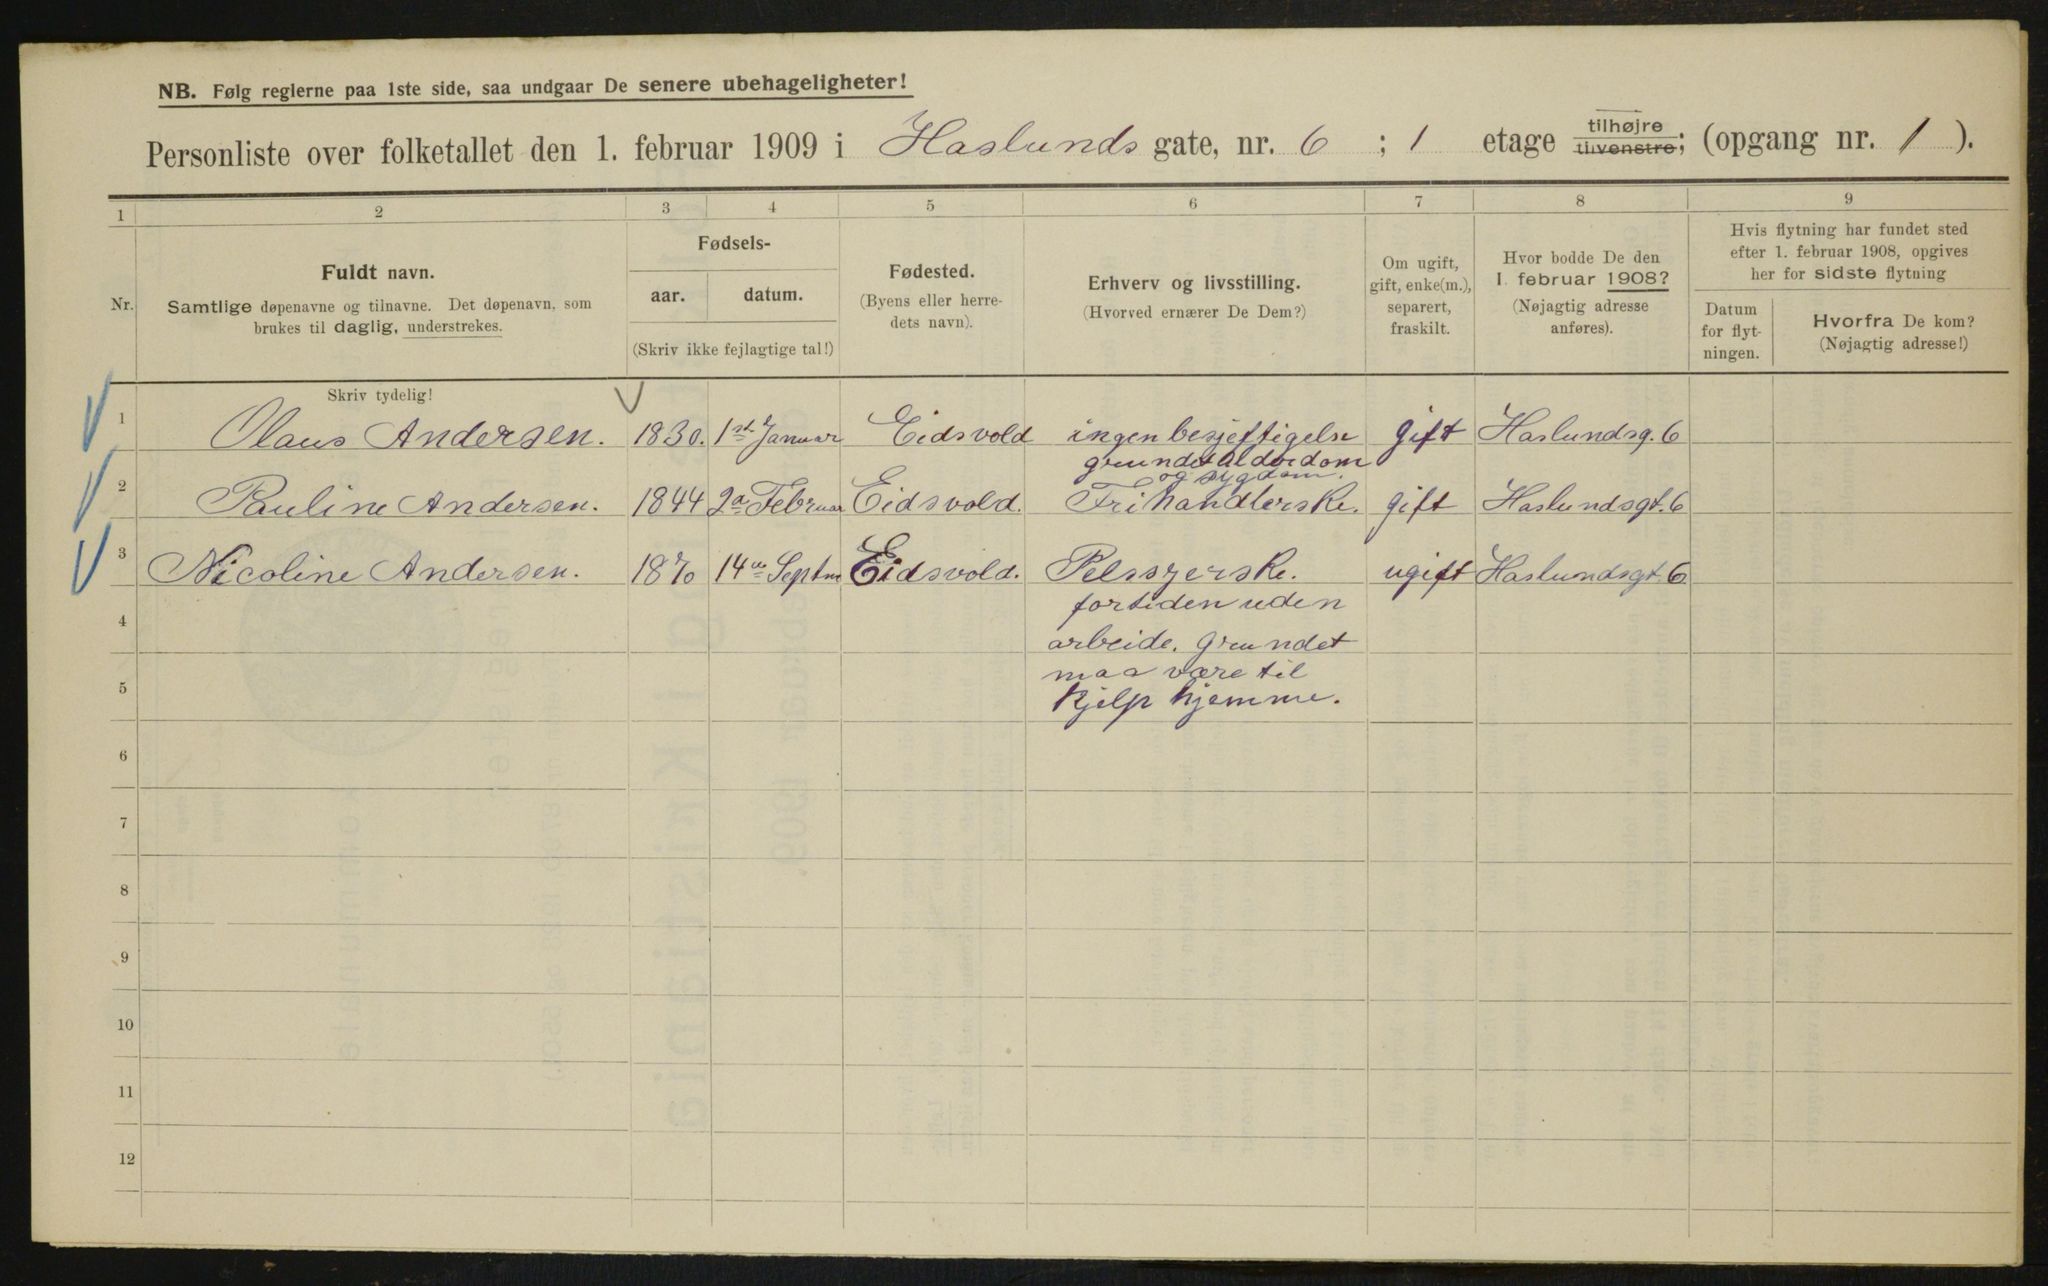 NB. Følg reglerne paa 1ste side, saa undgaar De senere ubehageligheter!
Personliste over folketallet den 1. februar 1909 i Haslunds gate, nr. 6 ; 1 etage tilhøjre tilvenstre; (opgang nr. 1 ).
1 2 3 4 5 6 7 8 9
Nr.
Fuldt navn.
Samtlige døpenavne og tilnavne. Det døpenavn, som
brukes til daglig, understrekes.
Fødsels-
aar. datum.
(Skriv ikke fejlagtige tal!)
Fødested.
(Byens eller herre-
dets navn).
Erhverv og livsstilling.
(Hvorved ernærer De Dem?)
Om ugift,
gift, enke(m.),
separert,
fraskilt.
Hvor bodde De den
1. februar 1908?
(Nøjagtig adresse
anføres).
Hvis flytning har fundet sted
efter 1. februar 1908, opgives
her for sidste flytning
Datum
for flyt-
ningen.
Hvorfra De kom?
(Nøjagtig adresse!)
Skriv tydelig!
1 Olaus Andersen. 1830. 1st Januar Eidsvold ingen besjeftigelse gift Haslundsg. 6
grundet alderdom
og sygdom.
2 Pauline Andersen. 1844 2a Februar Eidsvold. Frihandlerske. gift Haslundsgt. 6
3 Nicoline Andersen. 1870 14de Septm Eidsvold. Pelssyerske. ugift Haslundsgt. 6
fortiden uden
4
arbeide. grundet
maa være til
5
hjelp hjemme.
6
7
8
9
10
11
12